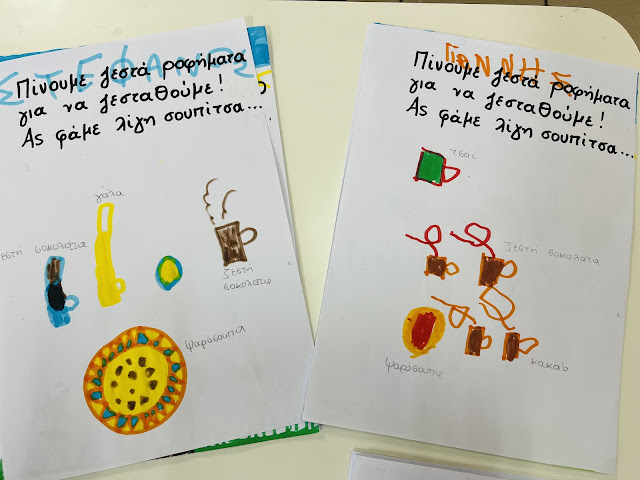 ΣΤΕΦΑΝΟΣ
Πίνουμε ζεστά ροφήματα
για να ζεσταθούμε!
Ας φάμε λίγη σουπίτσα...
γάλα
ζεστή σοκολάτα
ζεστή
σοκολάτα
ψαρόσουπα
ΓΙΑΝΝΗΣ
Πίνουμε ζεστά ροφήματα
για να ζεσταθούμε!
Ας φάμε λίγη σουπίτσα...
τσάι
ζεστή σοκολάτα
ψαρόσουπα
κακάο